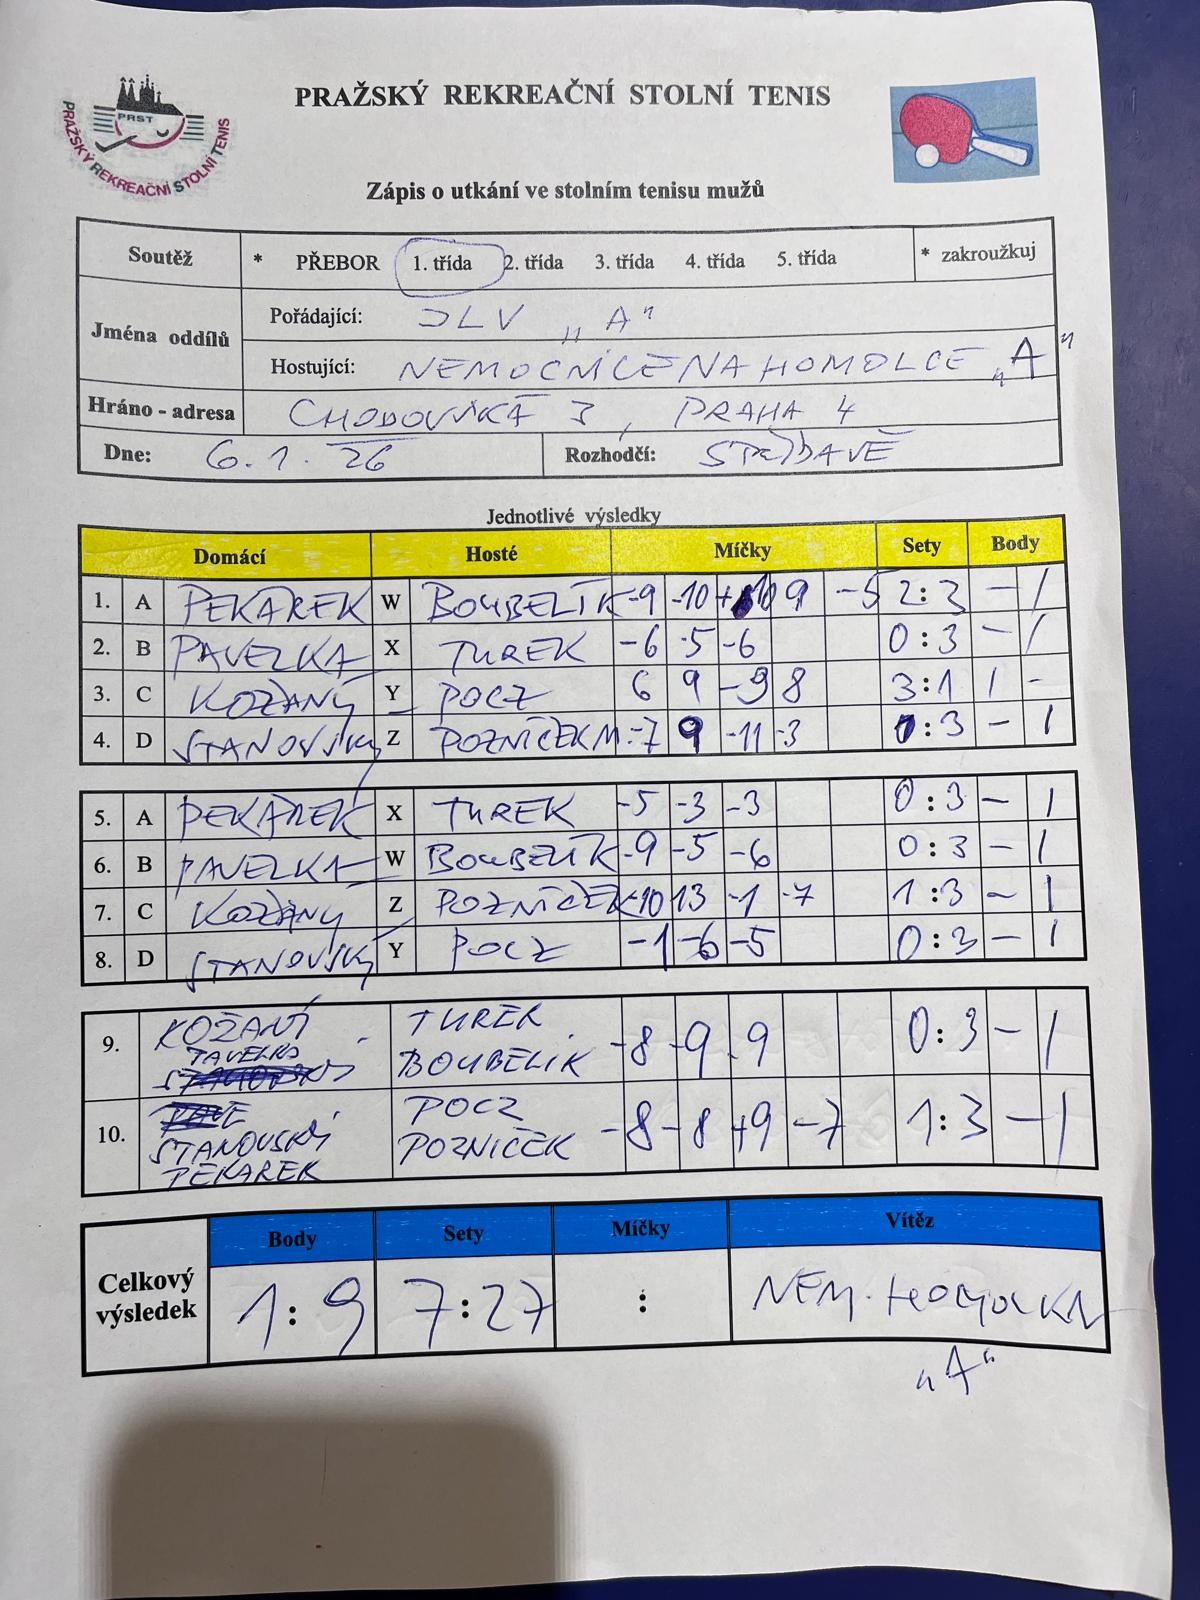 PRAŽSKÝ REKREAČNÍ STOLNÍ TENIS
PRST
PRAŽSKÝ REKREAČNÍ STOLNÍ TENIS
Zápis o utkání ve stolním tenisu mužů
Soutěž * PŘEBOR 1. třída 2. třída 3. třída 4. třída 5. třída * zakroužkuj
Jména oddílů
Pořádající: JLV „A"
Hostující: NEMOCNICE NA HOMOLCE „A"
Hráno - adresa CHODOVSKÁ 3, PRAHA 4
Dne: 6.1.26 Rozhodčí:
Jednotlivé výsledky
Domácí Hosté Míčky Sety Body
1. A PEKÁREK W BOUBELÍK -9 -10 +10 9 -5 2:3 - 1
2. B PAVELKA X TUREK -6 -5 -6 0:3 - 1
3. C KOŽANÝ Y POCZ 6 9 -9 8 3:1 1 -
4. D STANOVSKÝ Z POZNÍČEK M. -7 9 -11 -3 :3 - 1
5. A PEKÁREK X TUREK -5 -3 -3 0:3 - 1
6. B PAVELKA W BOUBELÍK -9 -5 -6 0:3 - 1
7. C KOŽANÝ Z POZNÍČEK -10 13 -1 -7 1:3 - 1
8. D STANOVSKÝ Y POCZ -1 -6 -5 0:3 - 1
9. KOŽANÝ TUREK -8 -9 -9 0:3 - 1
PAVELKA BOUBELÍK
10. POCZ -8 -8 +9 -7 1:3 - 1
STANOVSKÝ POZNÍČEK
PEKAREK
Celkový výsledek
Body Sety Míčky Vítěz
1:9 7:27 : NEM. HOMOLKA
„A"